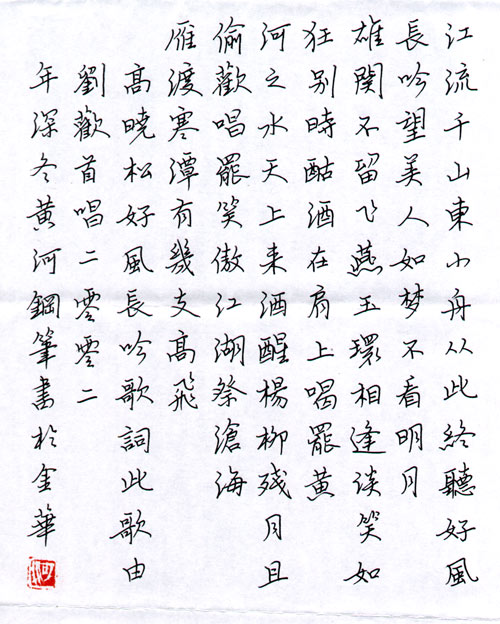 江流千山東小舟从此終聽好風
長吟望美人如梦不看明月
雄関不留飞燕玉環相逢谈笑如
狂别時酤酒在肩上喝罷黄
河之水天上来酒醒楊柳残月且
偷歡唱罷笑傲江湖祭滄海
雁渡寒潭有幾支高飛
高曉松好風長吟歌詞此歌由
劉歡首唱二零零二
年深冬黄河鋼筆書於金華